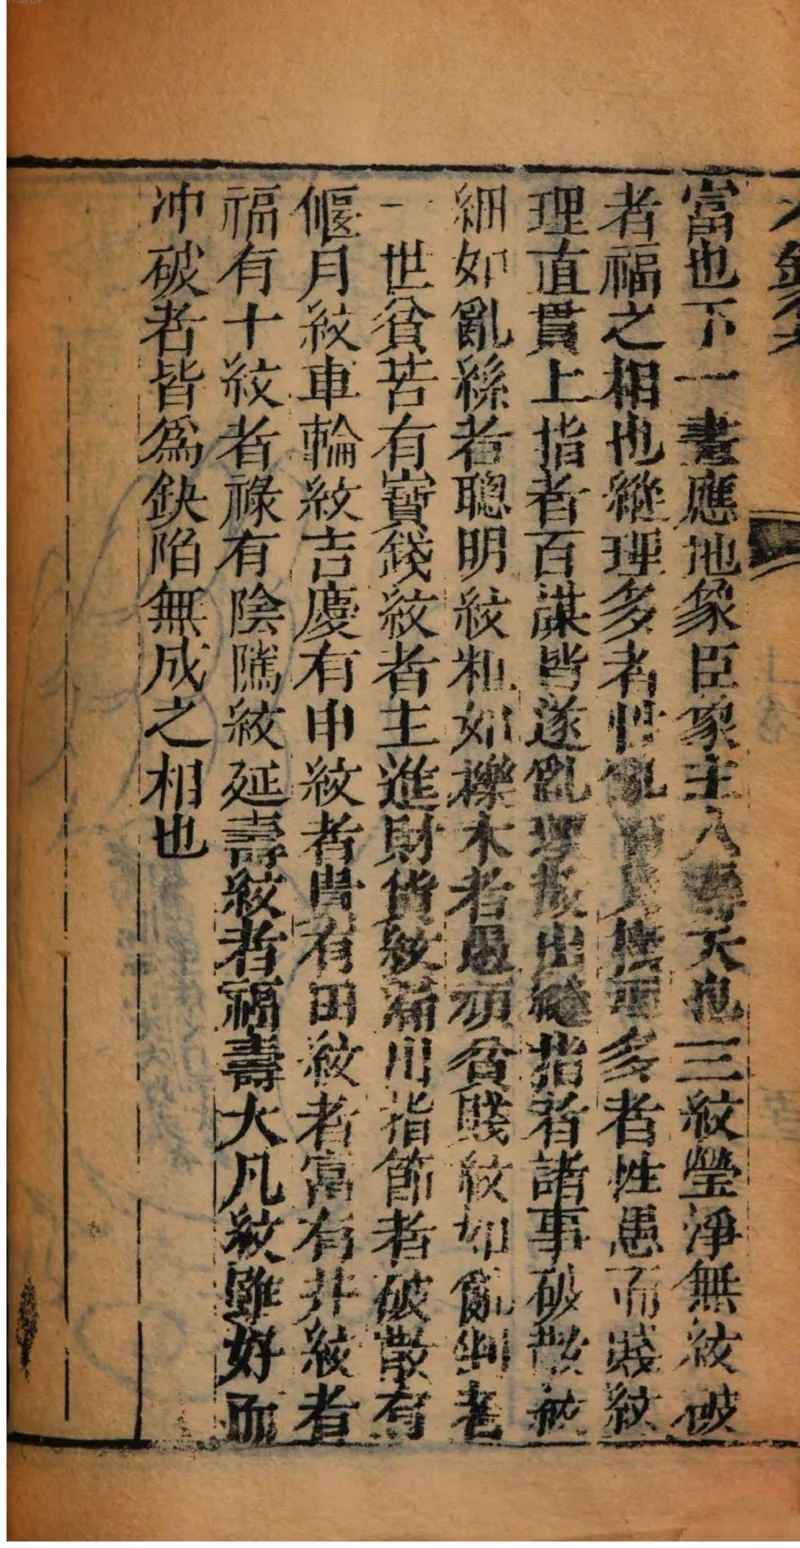 富也下一畫應地象臣象主人壽夭也三紋瑩淨無紋破
者福之相也縱理多者性亂而災橫理多者性愚而賤紋
理直貫上指者百謀皆遂亂理散出縫指者諸事破散紋
細如亂絲者聰明紋粗如櫟木者愚頑貧賤紋如亂剉者
一世貧苦有寳錢紋者主進財貨紋滿指節者破散有
偃月紋車輪紋吉慶有申紋者貴有田紋者富有井紋者
福有十紋者祿有陰隲紋延壽紋者福壽大凡紋雖好而
冲破者皆爲缺陷無成之相也